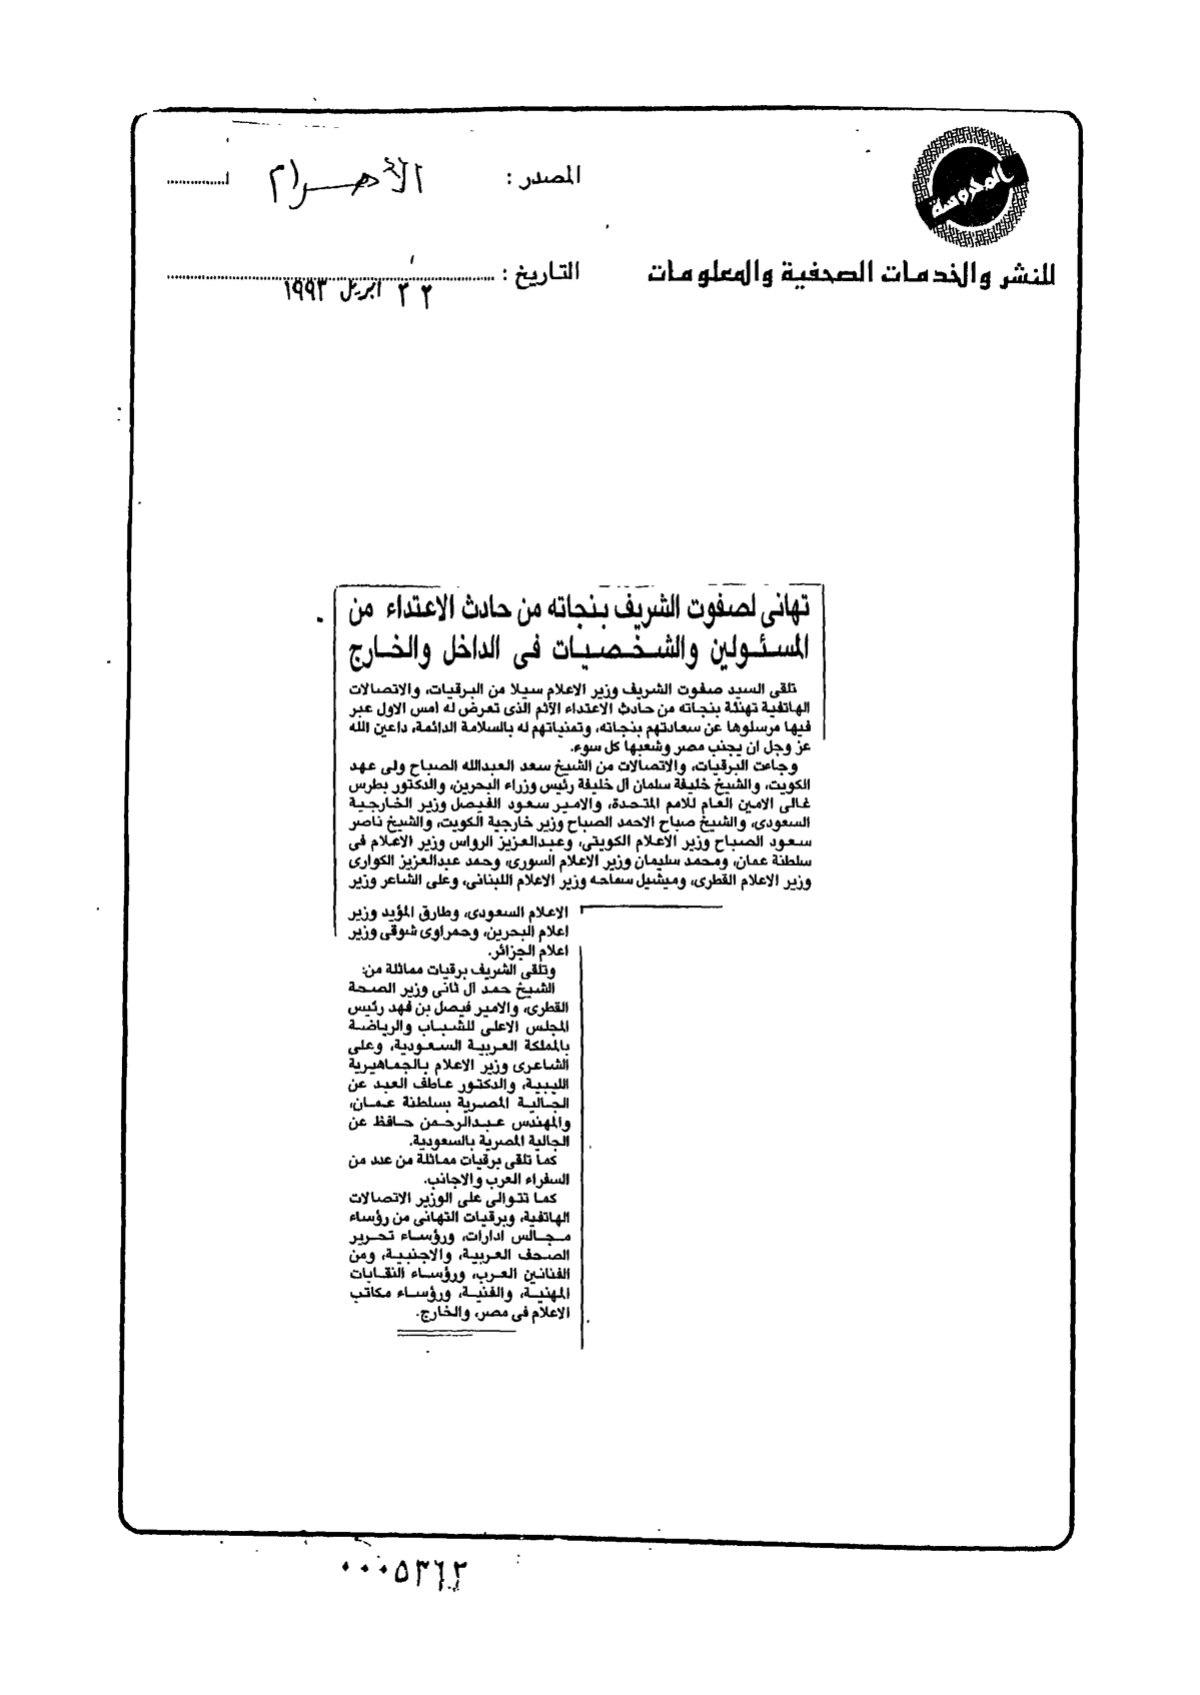 المحروسة
للنشر والخدمات الصحفية والمعلومات
المصدر : الأهرام
التاريخ : ٢٣ ابريل ١٩٩٣
تهانى لصفوت الشريف بنجاته من حادث الاعتداء من
المسئولين والشخصيات فى الداخل والخارج
تلقى السيد صفوت الشريف وزير الاعلام سيلا من البرقيات، والاتصالات
الهاتفية تهنئة بنجاته من حادث الاعتداء الآثم الذى تعرض له امس الاول عبر
فيها مرسلوها عن سعادتهم بنجاته، وتمنياتهم له بالسلامة الدائمة، داعين الله
عز وجل ان يجنب مصر وشعبها كل سوء.
وجاءت البرقيات، والاتصالات من الشيخ سعد العبدالله الصباح ولى عهد
الكويت، والشيخ خليفة سلمان آل خليفة رئيس وزراء البحرين، والدكتور بطرس
غالى الامين العام للامم المتحدة، والامير سعود الفيصل وزير الخارجية
السعودى، والشيخ صباح الاحمد الصباح وزير خارجية الكويت، والشيخ ناصر
سعود الصباح وزير الاعلام الكويتى، وعبدالعزيز الرواس وزير الاعلام فى
سلطنة عمان، ومحمد سليمان وزير الاعلام السورى، وحمد عبدالعزيز الكوارى
وزير الاعلام القطرى، وميشيل سماحه وزير الاعلام اللبنانى، وعلى الشاعر وزير
الاعلام السعودى، وطارق المؤيد وزير
اعلام البحرين، وحمراوى شوقى وزير
اعلام الجزائر.
وتلقى الشريف برقيات مماثلة من:
الشيخ حمد آل ثانى وزير الصحة
القطرى، والامير فيصل بن فهد رئيس
المجلس الاعلى للشباب والرياضة
بالمملكة العربية السعودية، وعلى
الشاعرى وزير الاعلام بالجماهيرية
الليبية، والدكتور عاطف العبد عن
الجالية المصرية بسلطنة عمان،
والمهندس عبدالرحمن حافظ عن
الجالية المصرية بالسعودية.
كما تلقى برقيات مماثلة من عدد من
السفراء العرب والاجانب.
كما تتوالى على الوزير الاتصالات
الهاتفية، وبرقيات التهانى من رؤساء
مجالس ادارات، ورؤساء تحرير
الصحف العربية، والاجنبية، ومن
الفنانين العرب، ورؤساء النقابات
المهنية، والفنية، ورؤساء مكاتب
الاعلام فى مصر، والخارج.
٠٠٠٥٣٦٢